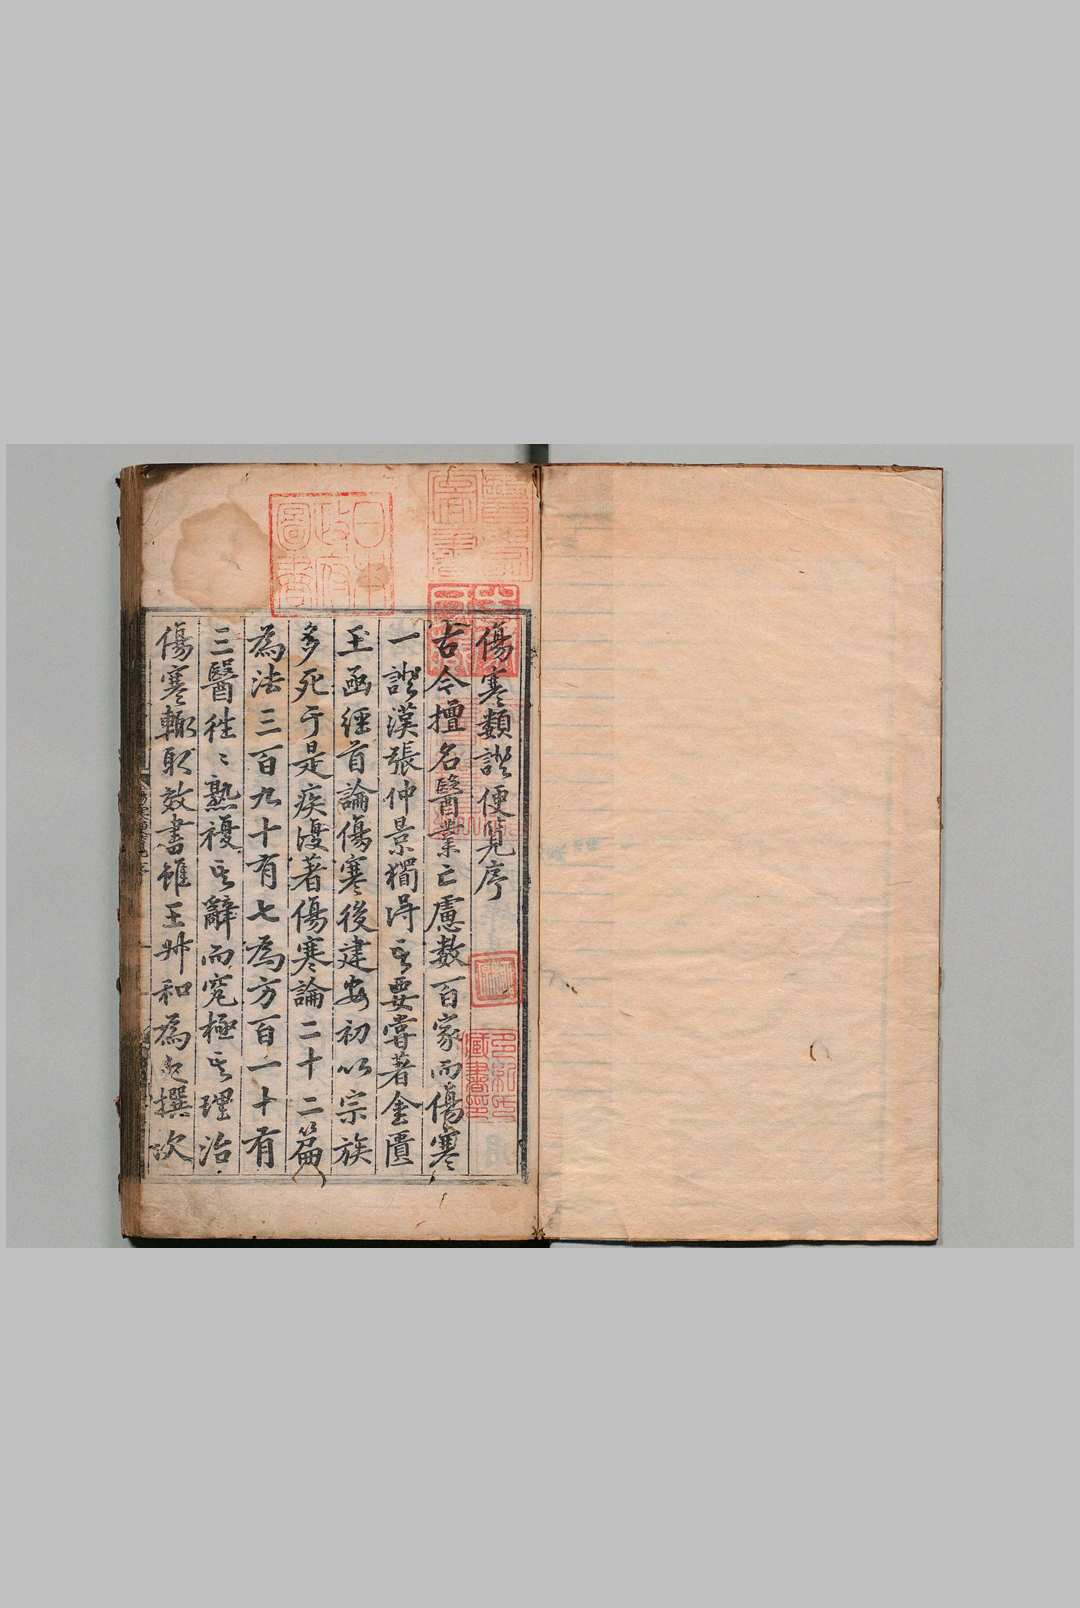 傷寒類證便覽序
古今擅名醫業亡慮數百家而傷寒
一證漢張仲景獨得其要嘗著金匱
玉函經首論傷寒後建安初以宗族
多死于是疾復著傷寒論二十二篇
為法三百九十有七為方百一十有
三醫徃〻熟複其辭而究極其理治
傷寒輒取效書雖王叔和為之撰次
日本
政府
圖書